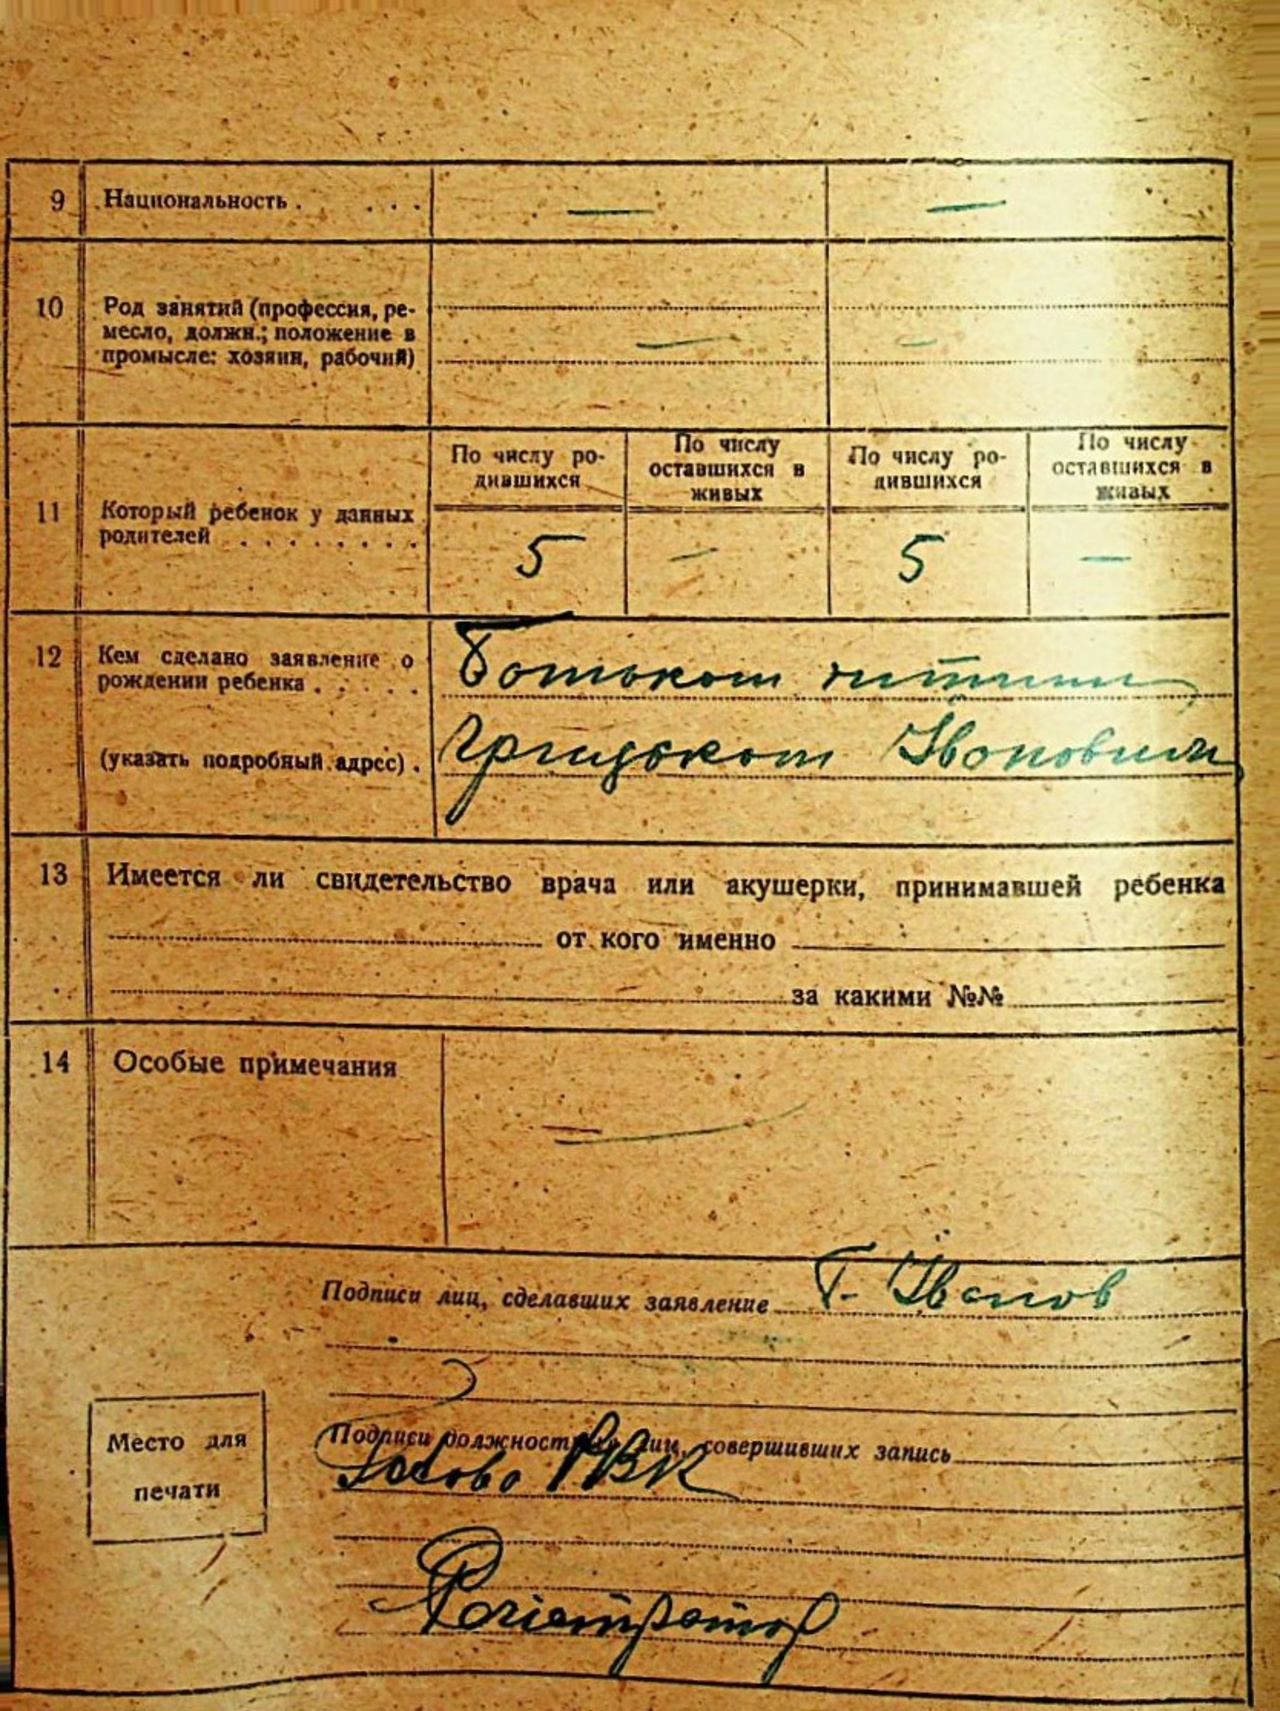 9 Национальность . . . . — —
10 Род занятий (профессия, ре-
месло, должн.; положение в
промысле: хозяин, рабочий) — —
11 Который ребенок у данных
родителей . . . . . . . .
По числу ро-
дившихся
По числу
оставшихся в
живых
По числу ро-
дившихся
По числу
оставшихся в
живых
5 — 5 —
12 Кем сделано заявление о
рождении ребенка . . . . .
(указать подробный адрес) .
Батьком
Івановичем
13 Имеется ли свидетельство врача или акушерки, принимавшей ребенка
от кого именно
за какими №№
14 Особые примечания —
Подписи лиц, сделавших заявление Г. Іванов
Подписи должностных лиц, совершивших запись
Голова РВК
Место для
печати
Реєстратор